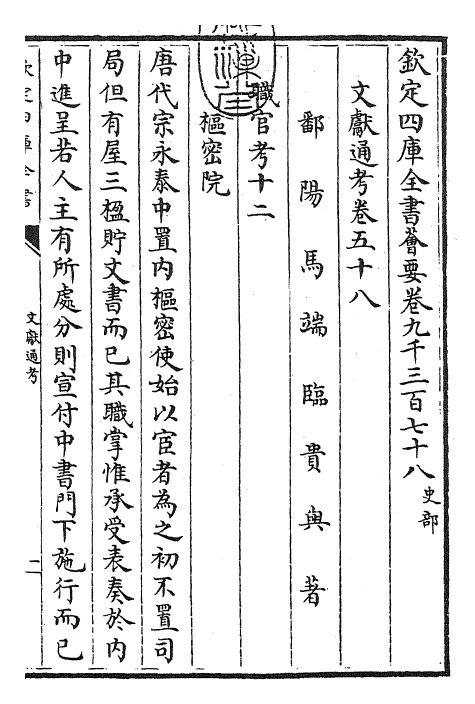 欽定四庫全書薈要卷九千三百七十八史部
文獻通考卷五十八
鄱陽馬端臨貴與著
職官考十二
樞密院
唐代宗永泰中置內樞密使始以宦者為之初不置司
局但有屋三楹貯文書而已其職掌惟承受表奏於內
中進呈若人主有所處分則宣付中書門下施行而已
欽定四庫全書
文獻通考
二